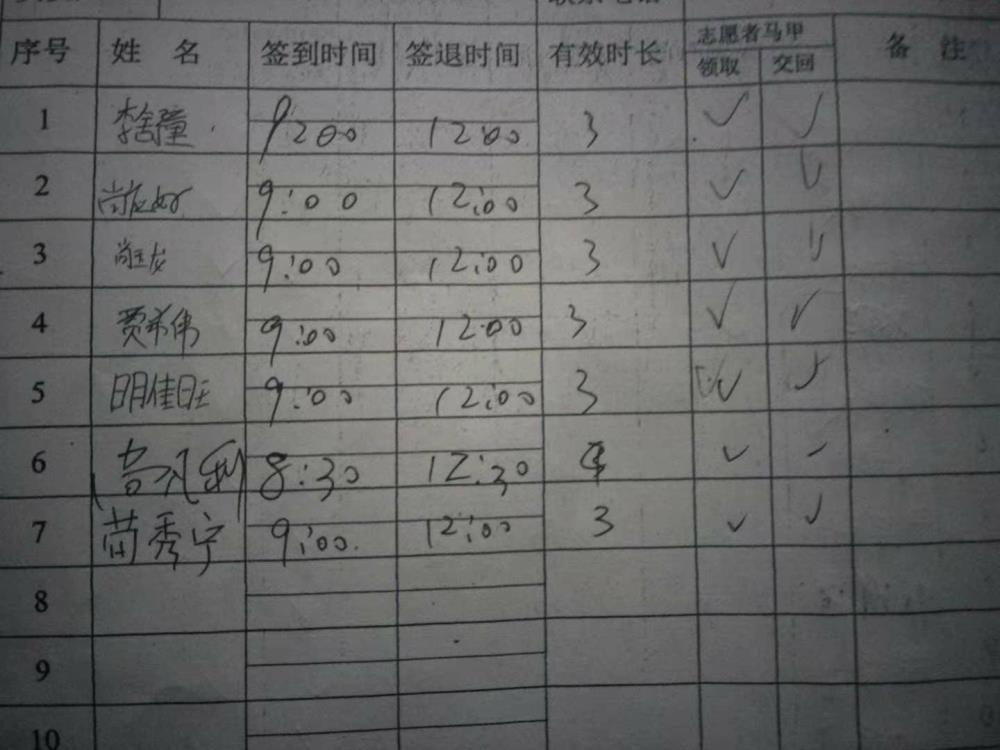 序号 姓名 签到时间 签退时间 有效时长 志愿者马甲 备注
领取 交回
1 9:00 12:00 3 ✓ ✓
2 9:00 12:00 3 ✓ ✓
3 9:00 12:00 3 ✓ ✓
4 贾希伟 9:00 12:00 3 ✓ ✓
5 明佳旺 9:00 12:00 3 ✓ ✓
6 8:30 12:30 4 ✓ ✓
7 苗秀宁 9:00 12:00 3 ✓ ✓
8
9
10